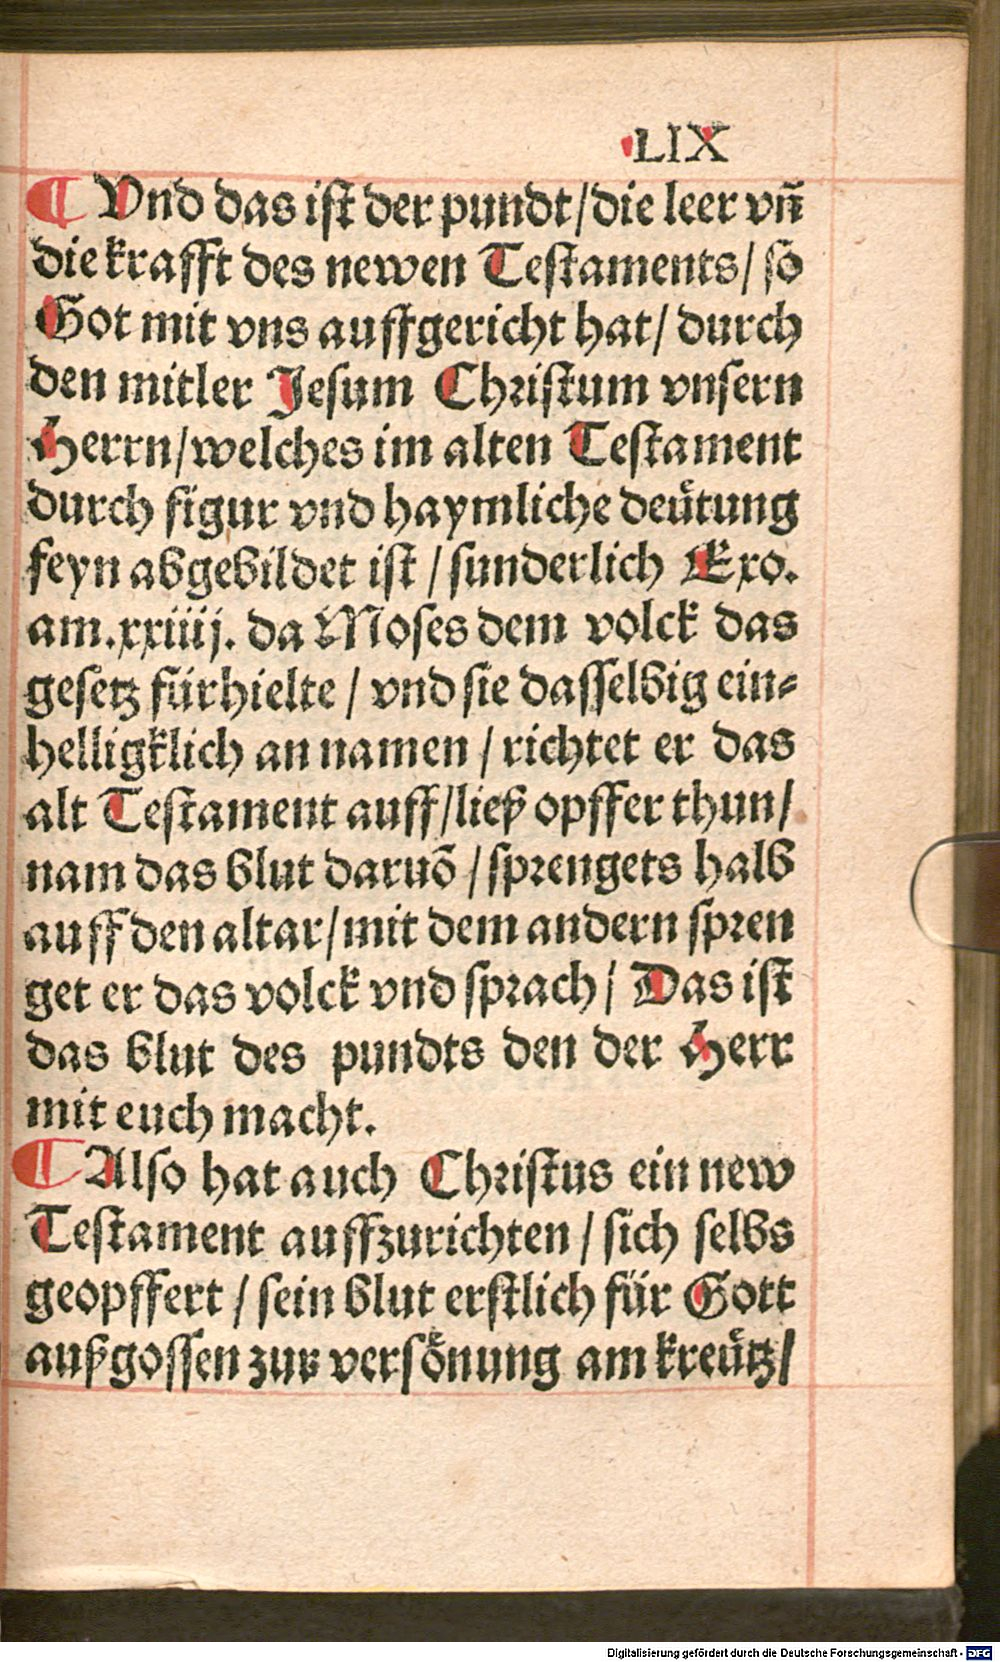 LIX
¶ Vnd das ist der pundt/die leer vn̄
die krafft des newen Testaments/ so
Got mit vns auffgericht hat/ durch
den mitler Jesum Christum vnsern
Herrn/welches im alten Testament
durch figur vnd haymliche deütung
feyn abgebildet ist / sunderlich Exo.
am.xxiiij. da Moses dem volck das
gesetz fürhielte / vnd sie dasselbig ein⸗
helligklich an namen / richtet er das
alt Testament auff/ließ opffer thun/
nam das blut daruõ / sprengets halb
auff den altar/mit dem andern spren
get er das volck vnd sprach / Das ist
das blut des pundts den der Herr
mit euch macht.
¶ Also hat auch Christus ein new
Testament auffzurichten / sich selbs
geopffert / sein blut erstlich für Gott
außgossen zur versönung am kreütz/
Digitalisierung gefördert durch die Deutsche Forschungsgemeinschaft - DFG